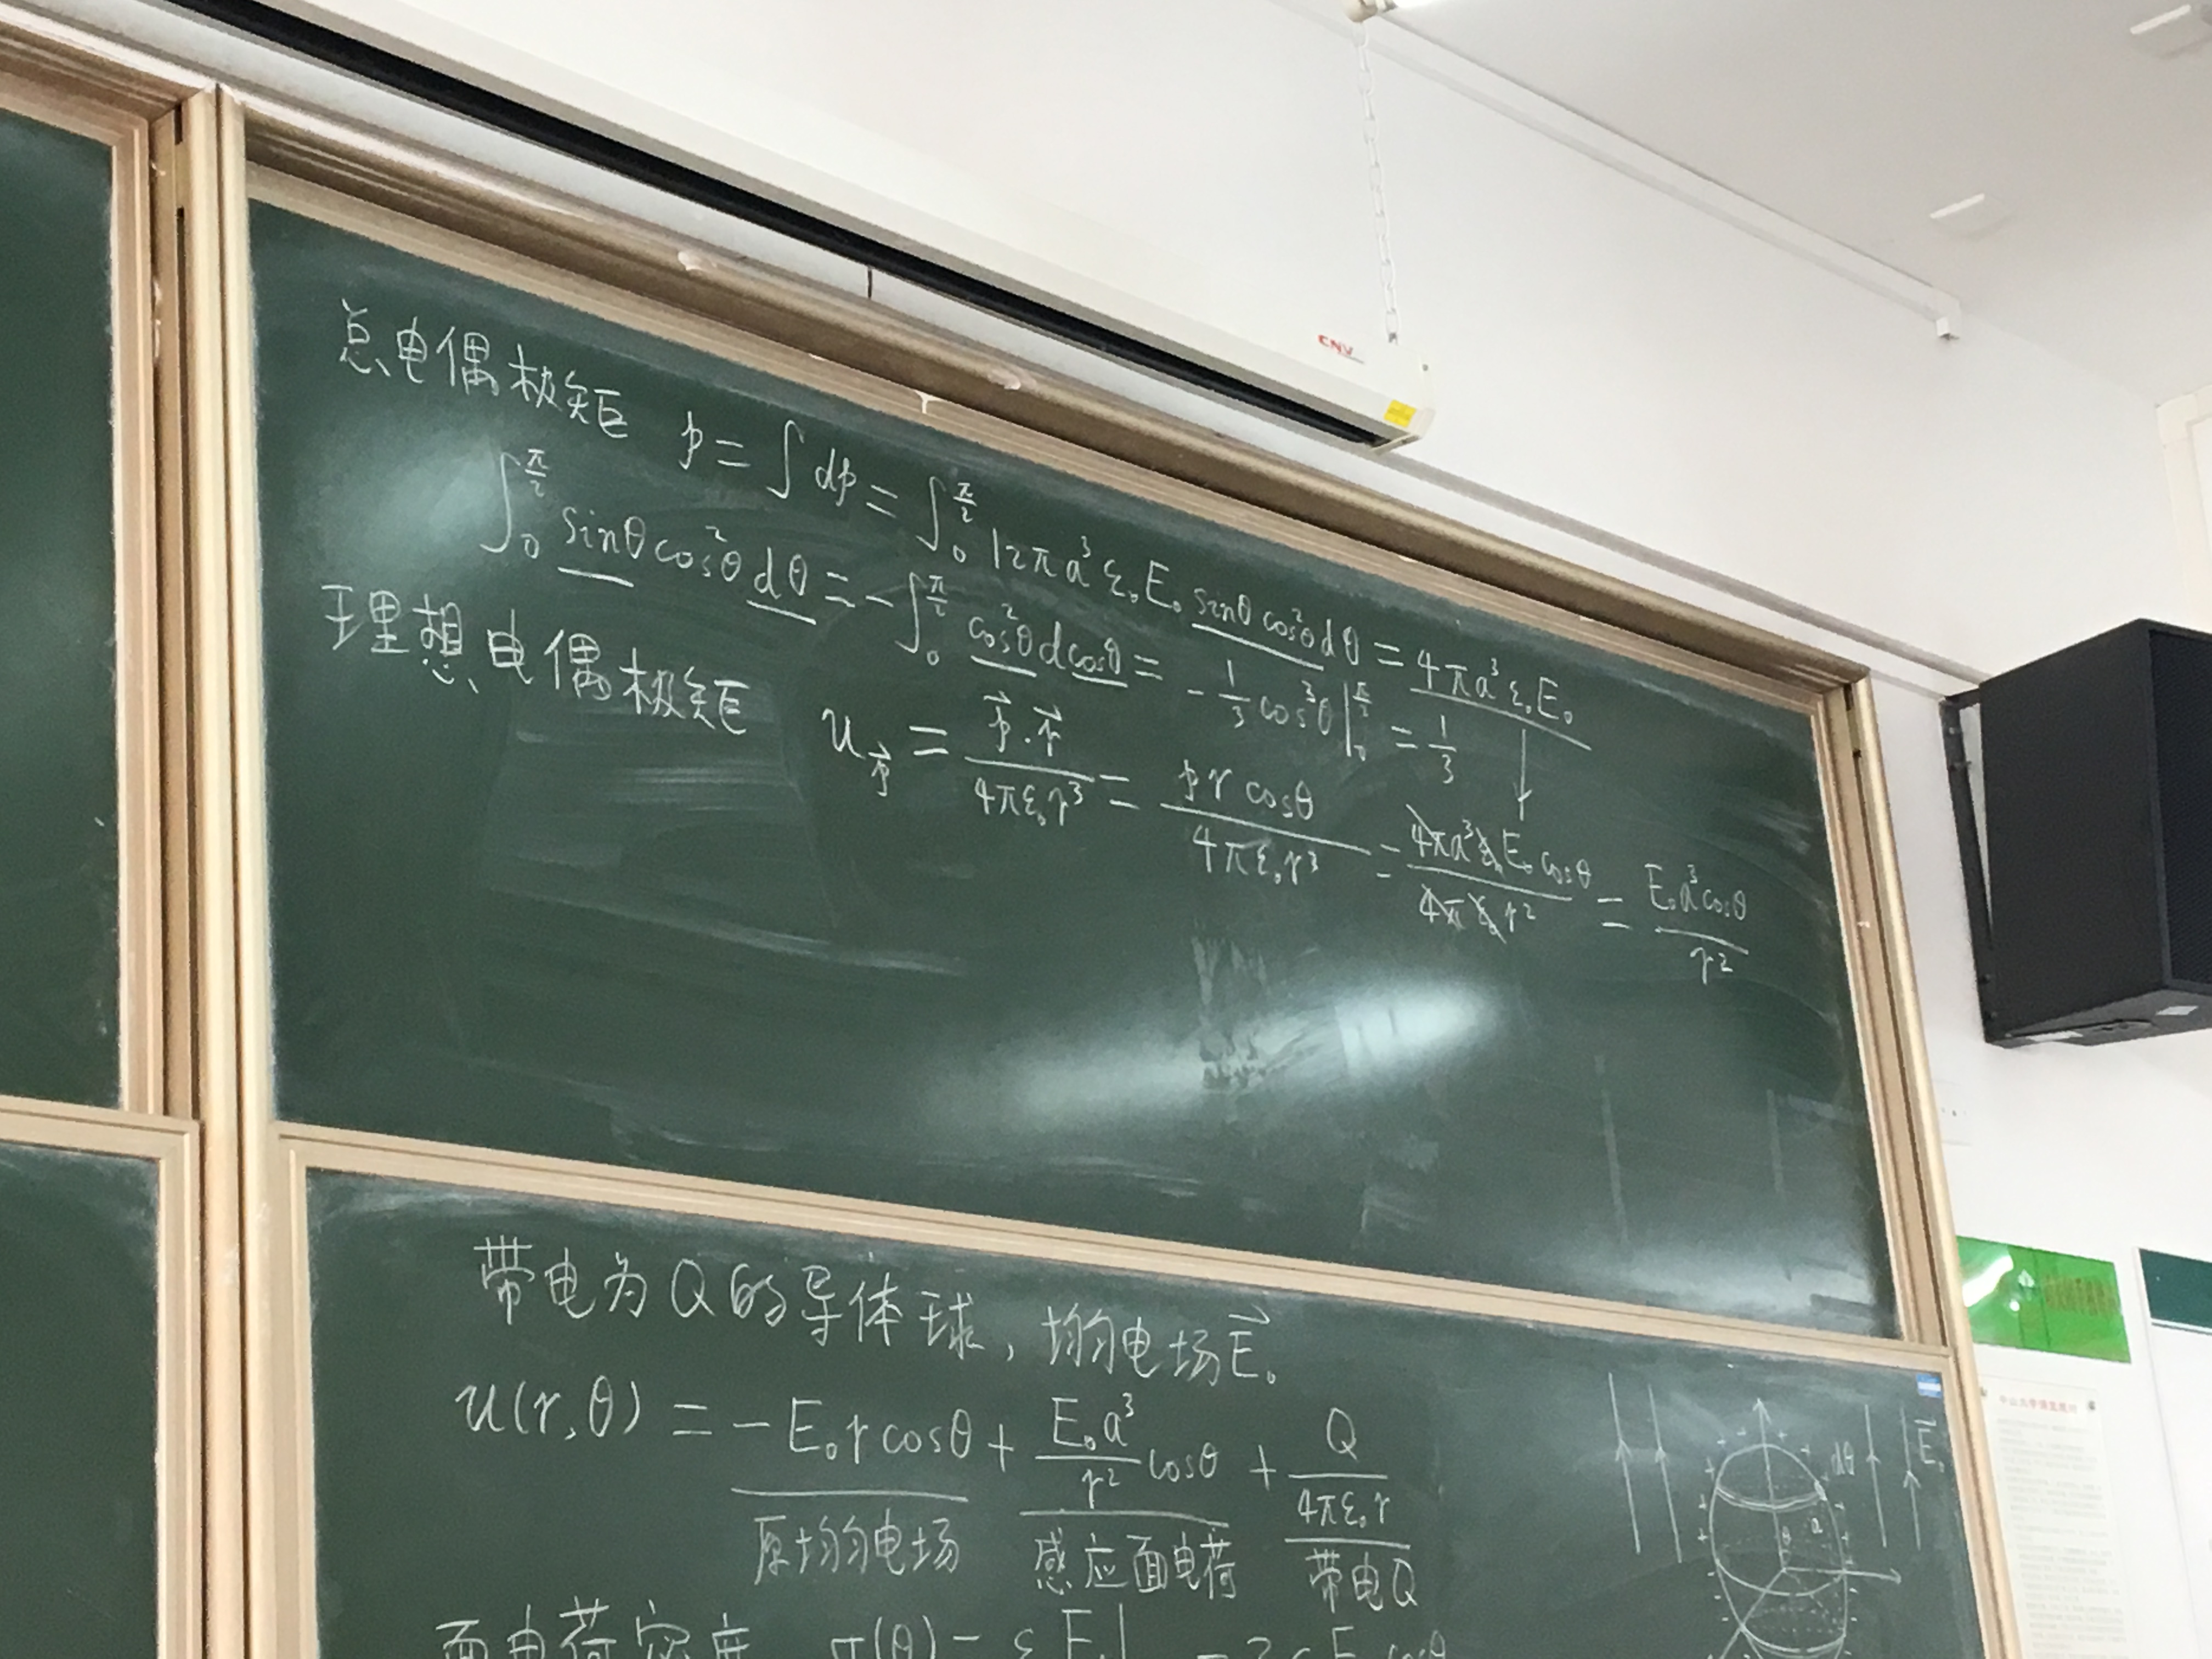 CNV
总电偶极矩 p = ∫dp = ∫₀^{π/2} 12πa³ε₀E₀ sinθcos²θdθ = 4πa³ε₀E₀
∫₀^{π/2} sinθcos²θdθ = -∫₀^{π/2} cos²θdcosθ = -1/3 cos³θ|₀^{π/2} = 1/3
理想电偶极矩 u_{p⃗} = p⃗·r⃗/4πε₀r³ = prcosθ/4πε₀r³ = 4πa³ε₀E₀cosθ/4πε₀r² = E₀a³cosθ/r²
带电为Q的导体球，均匀电场E⃗₀
u(r,θ) = -E₀rcosθ + E₀a³/r² cosθ + Q/4πε₀r
原均匀电场 感应面电荷 带电Q
面电荷密度 σ(θ) =
dθ
E⃗₀
θ
a